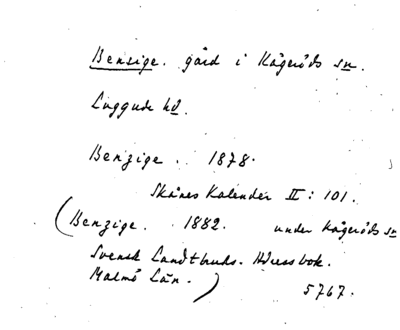 Bensige. gård i Kågeröds sn.
Luggude hd.
Benzige. 1878.
Skånes Kalender II: 101.
(Benzige. 1882. under Kågeröds sn
Svensk Landtbruks. Adressbok.
Malmö Län.)
5767.